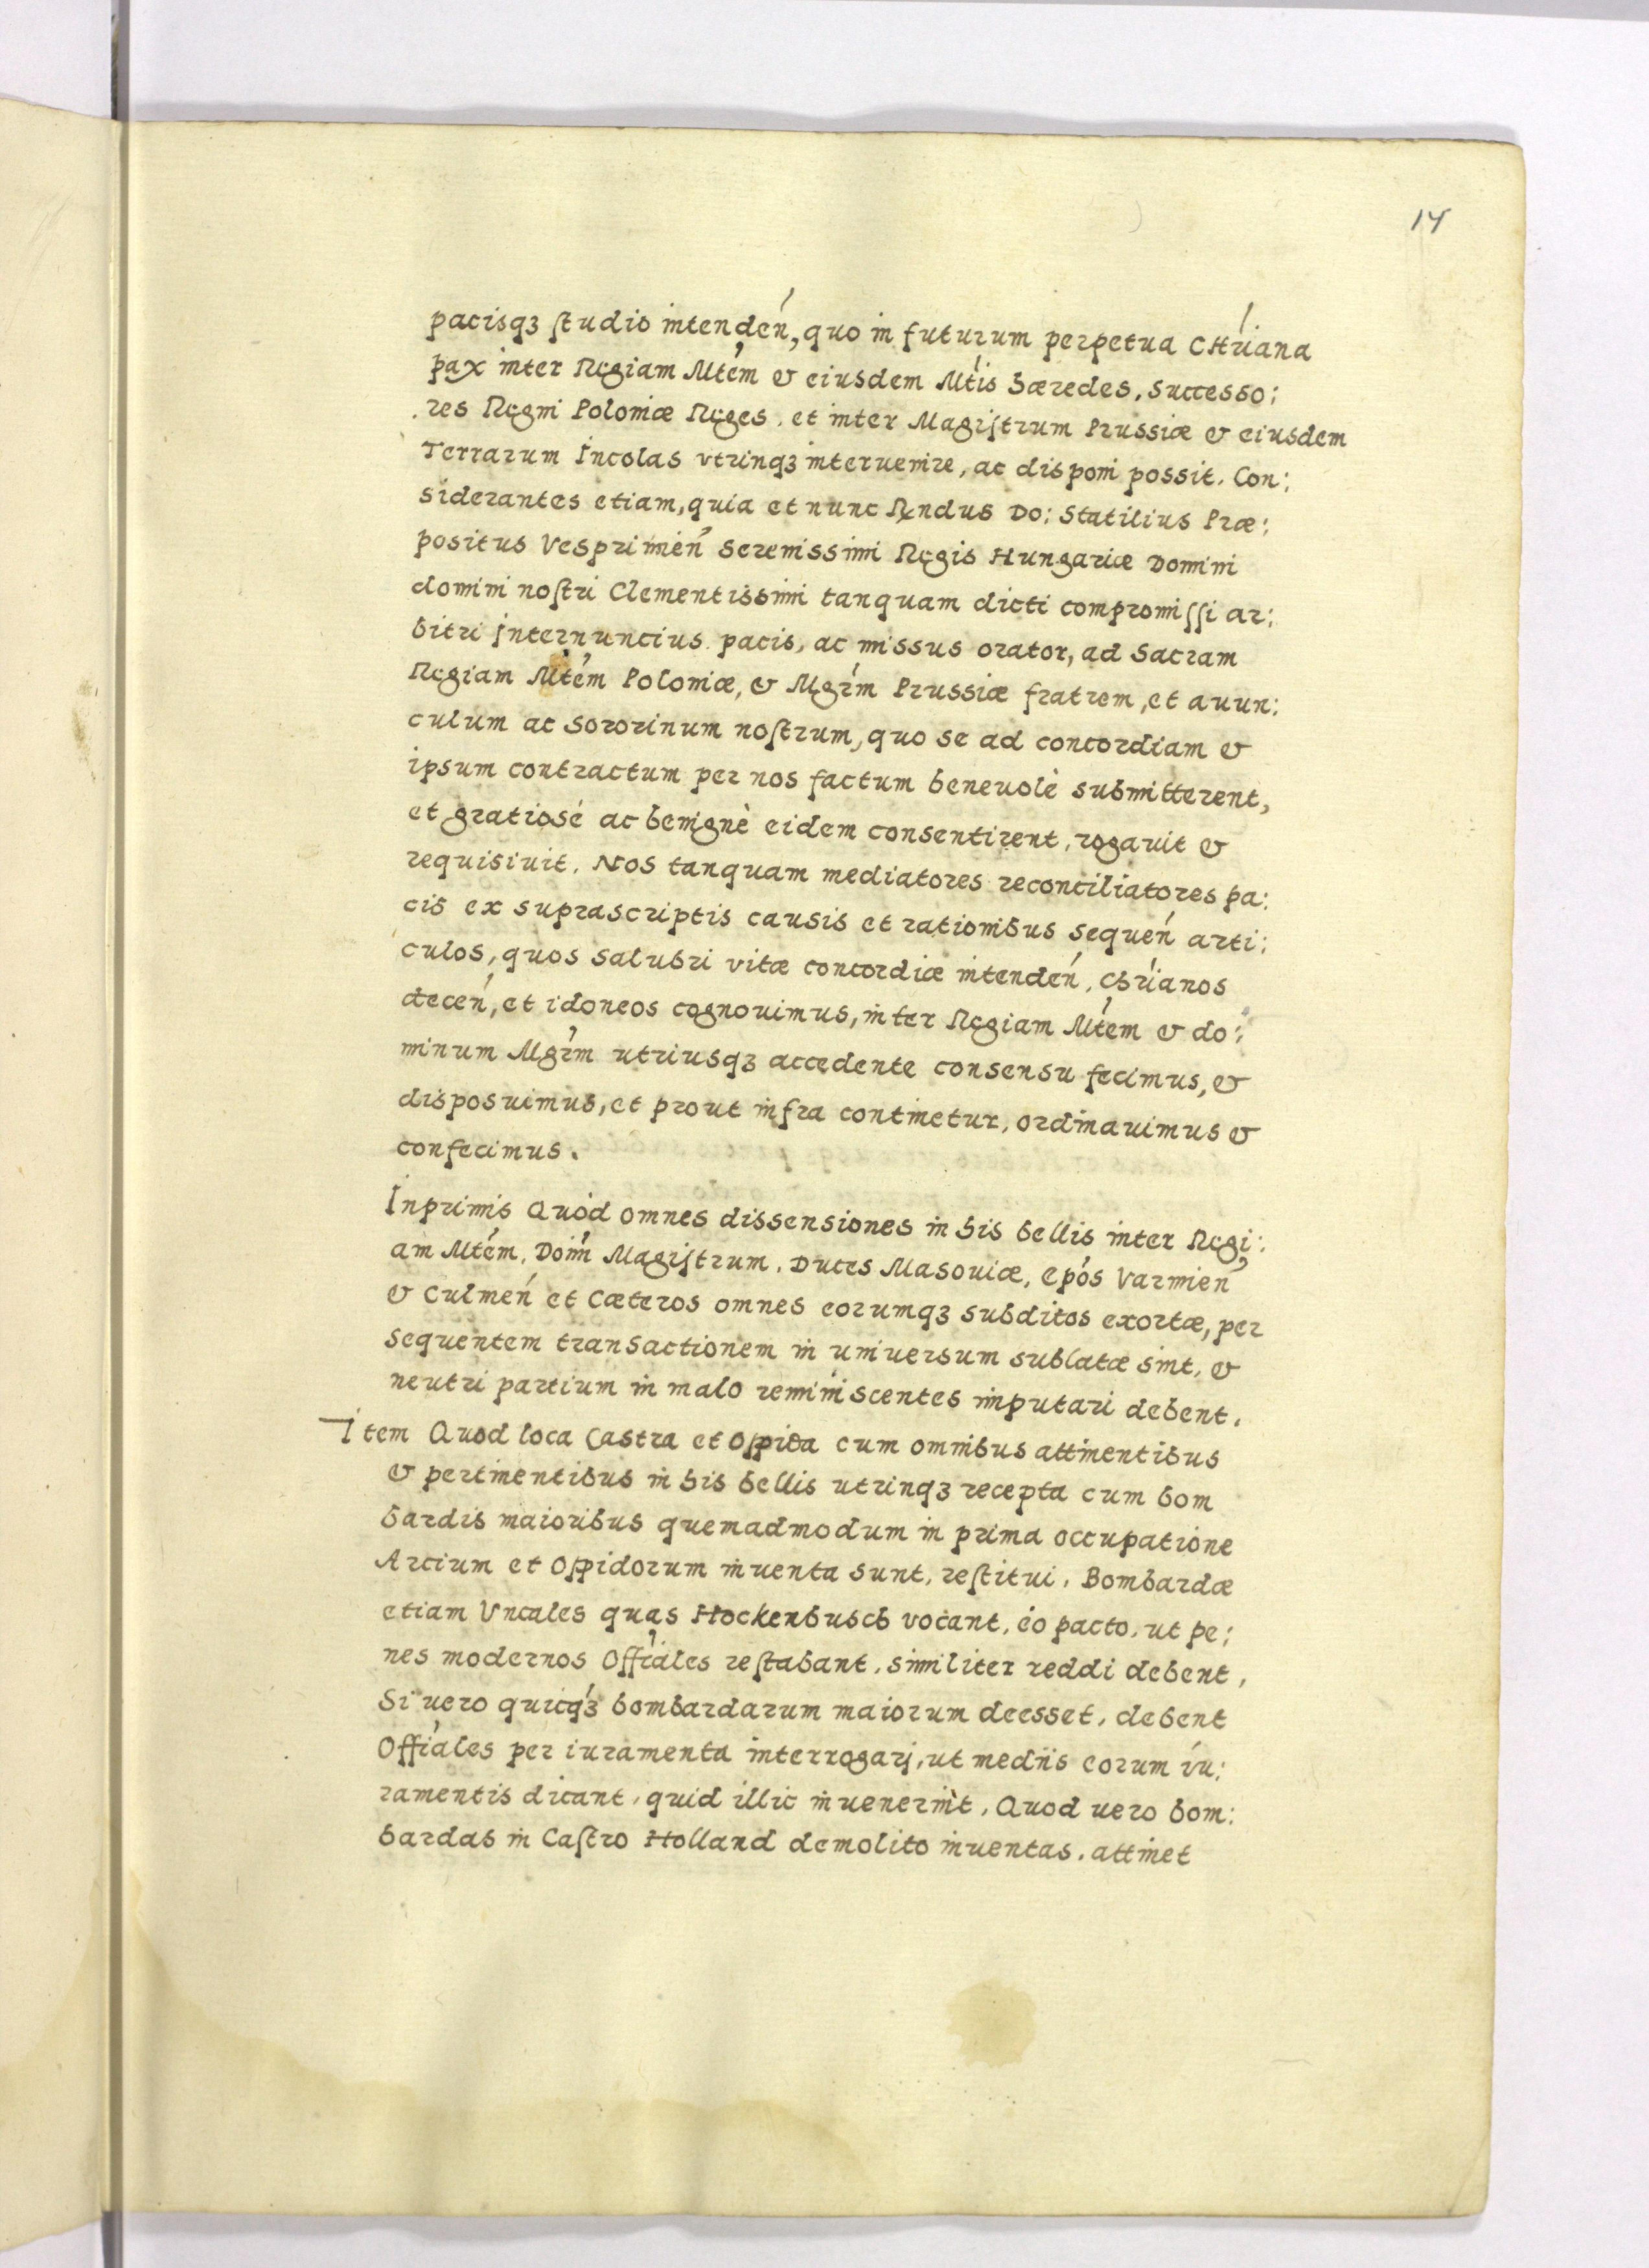 14
pacisqȝ studio intendeń, quo in futurum perpetua CHŕiana
pax inter Regiam Mt́em & eiusdem Mt́is hæredes, successo:
res Regni Poloniæ Reges, et inter Magistrum Prussiæ & eiusdem
Terrarum Incolas vtrinqȝ interuenire, ac disponi possit. Con:
siderantes etiam, quia et nunc Rndus Do: Statilius Præ:
positus Vesprimień Serenissimi Regis Hungariæ Domini
domini nostri Clementissimi tanquam dicti compromissi ar:
bitri internuncius pacis, ac missus orator, ad Sacram
Regiam Mt́em Poloniæ, & Mgŕm Prussiæ fratrem, et auun:
culum ac Sororinum nostrum, quo se ad concordiam &
ipsum contractum per nos factum beneuolè submitterent,
et gratiosè ac benignè eidem consentirent, rogauit &
requisiuit. Nos tanquam mediatores reconciliatores pa:
cis ex suprascriptis causis et rationibus sequeń arti:
culos, quos salubri vitæ concordiæ intendeń, Chŕianos
deceń, et idoneos cognouimus, inter Regiam Mt́em & do:
minum Mgŕm utriusqȝ accedente consensu fecimus, &
disposuimus, et prout infra continetur, ordinauimus &
confecimus.
Inprimis Quòd omnes dissensiones in his bellis inter Regi:
am Mt́em, Doḿ Magistrum, Duces Masouiæ, epós Varmień
& Culmeń et Cæteros omnes eorumqȝ subditos exortæ, per
sequentem transactionem in uniuersum sublatæ sint, &
neutri partium in malo reminiscentes imputari debent.
Item Quod loca Castra et Oppida cum omnibus attinentibus
& pertinentibus in his bellis utrinqȝ recepta cum bom
bardis maioribus quemadmodum in prima occupatione
Arcium et Oppidorum inuenta sunt, restitui. Bombardæ
etiam Vncales quas Hockenbusch vocant, eo pacto, ut pe:
nes modernos Offíales restabant, similiter reddi debent,
Si uero quicqȝ́ bombardarum maiorum deesset, debent
Offíales per iuramenta interrogarj, ut medijs eorum iu:
ramentis dicant, quid illic inuenerint, Quod uero bom:
bardas in Castro Holland demolito inuentas, attinet